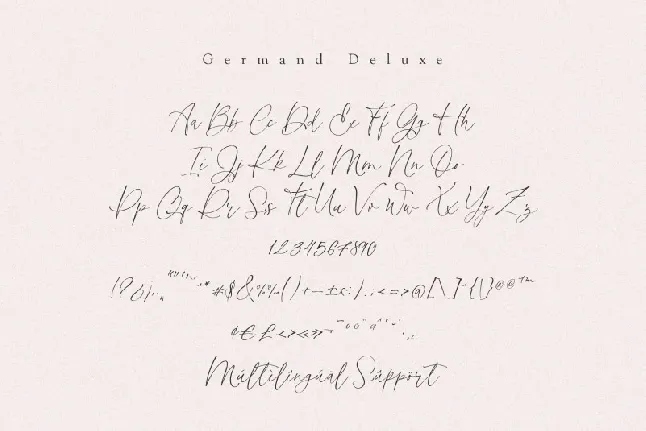 Germand Deluxe
Aa Bb Cc Dd Ee Ff Gg Hh
Ii Jj Kk Ll Mm Nn Oo
Pp Qq Rr Ss Tt Uu Vv Ww Xx Yy Zz
1234567890
#$&%‰()+−±÷:/.,<=>@[\]{|}©®™
¢€£‹›«»
Múltilingùal Sûppört